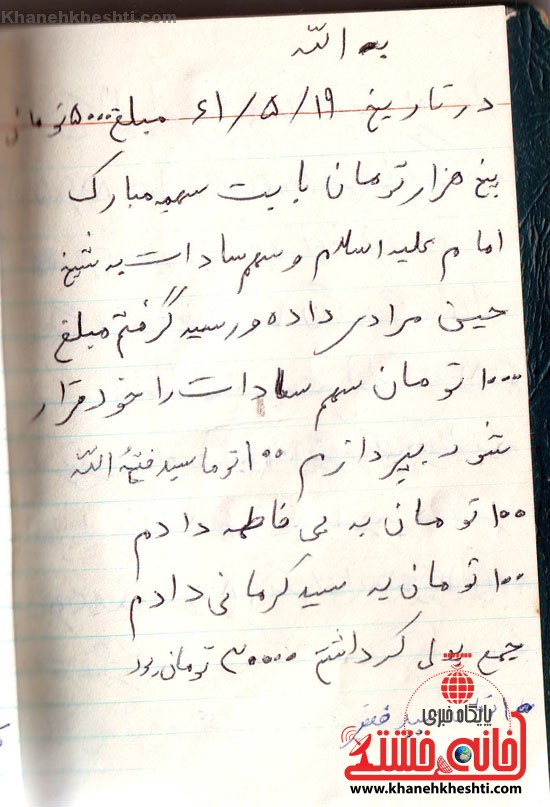 Khanehkheshti.com
به الله
در تاریخ ۶۱/۵/۱۹ مبلغ ۵۰۰۰ تومانی
پنج هزار تومان بابت سهم مبارک
امام علیه اسلام و سهم سادات به شیخ
حسین مرادی داده و رسید گرفتم مبلغ
۱۰۰۰ تومان سهم سادات را خود قرار
شود بپردازم ۱۰۰ توما سید فتح الله
۱۰۰ تومان به بی فاطمه دادم
۱۰۰ تومان به سید کرمانی دادم
جمع پولی که داشتم ۳۰۰۰۰ تومان بود
سید
پایگاه خبری
خانه خشتی
www.khanehkheshti.com